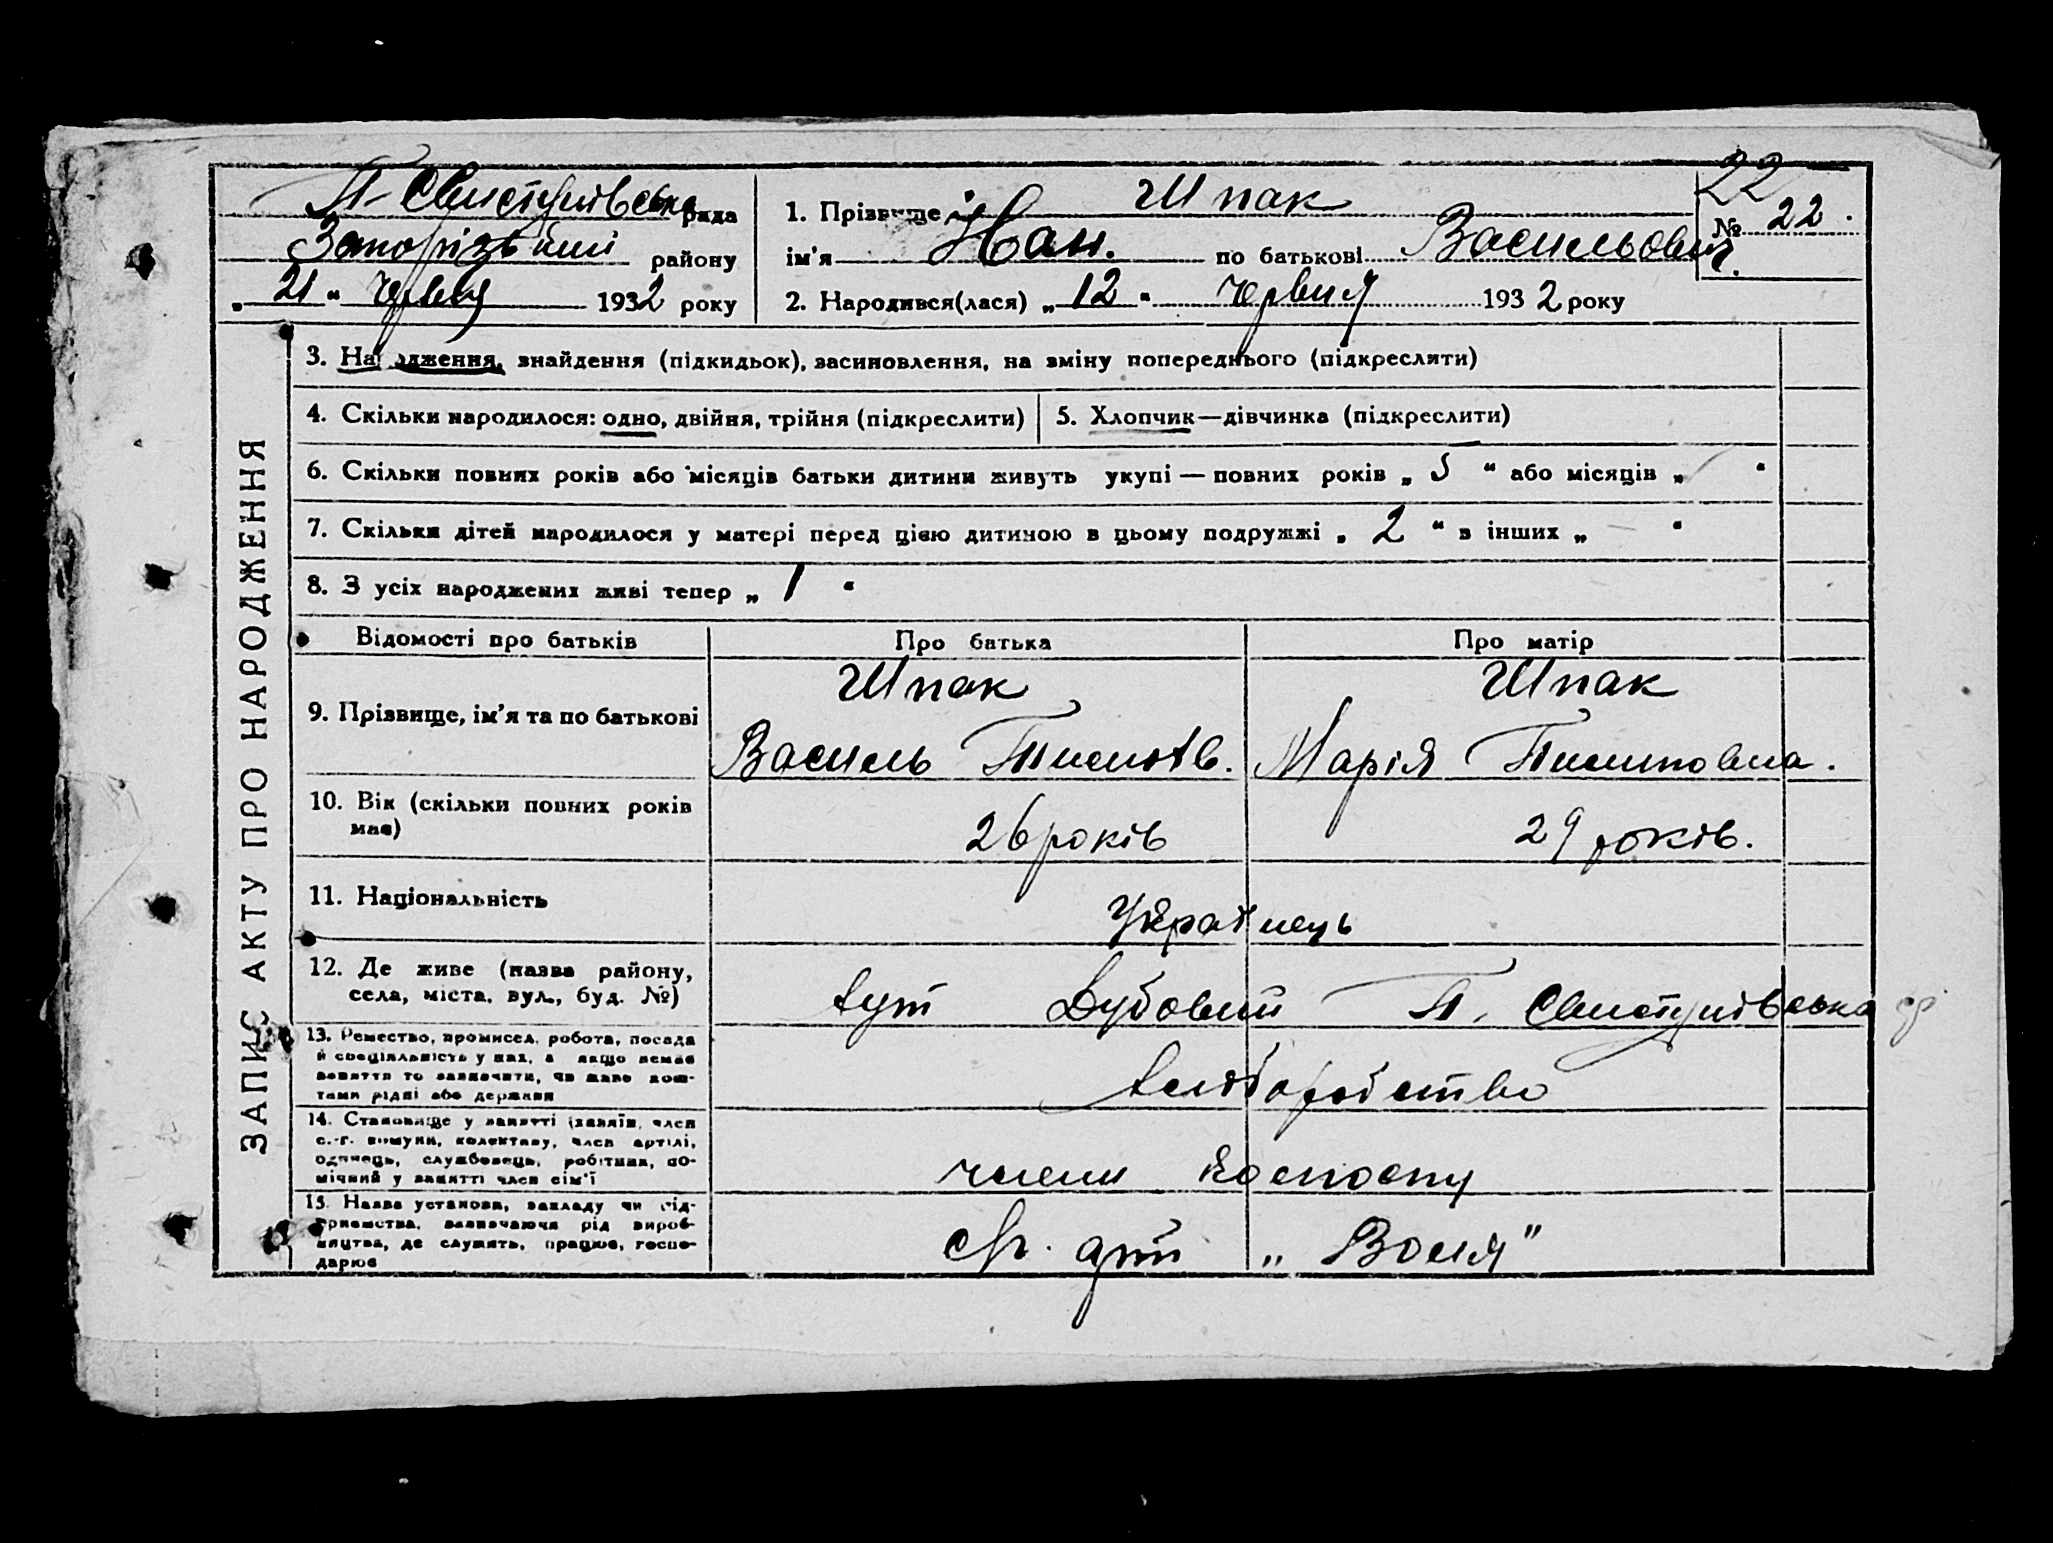 22
П-Свистунівська рада
Запорізький району
„ 21 " червня 1932 року
1. Прізвище Шпак
ім'я Иван. по батькові Васильович.
№ 22.
2. Народився(лася) „ 12 " червня 1932 року
ЗАПИС АКТУ ПРО НАРОДЖЕННЯ
3. Народження, знайдення (підкидьок), засиновлення, на зміну попереднього (підкреслити)
4. Скільки народилося: одно, двійня, трійня (підкреслити)
5. Хлопчик—дівчинка (підкреслити)
6. Скільки повних років або місяців батьки дитини живуть укупі — повних років „ 5 " або місяців „ "
7. Скільки дітей народилося у матері перед цією дитиною в цьому подружжі „ 2 " в інших „ — "
8. З усіх народжених живі тепер „ 1 "
Відомості про батьків Про батька Про матір
9. Прізвище, ім'я та по батькові
Шпак Шпак
Василь Марія Пилиповна.
10. Вік (скільки повних років
має)
26 років 29 років.
11. Національність
Українець
12. Де живе (назва району,
села, міста, вул., буд. №)
хут Дубовий П. Свистунівська
13. Ремество, промисел, робота, посада
й спеціяльність у них, а якщо немає
заняття то зазначити, чи живе кош-
тами рідні або держави
хліборобство
14. Становище у занятті (хазяїн, член
с.-г. комуни, колективу, член артілі,
одинець, службовець, робітник, по-
мічний у занятті член сім'ї
члени колгоспу
15. Назва установи, закладу чи під-
приємства, зазначаючи рід вироб-
ництва, де служить, працює, госпо-
дарює
с/г. арт „ Воля"